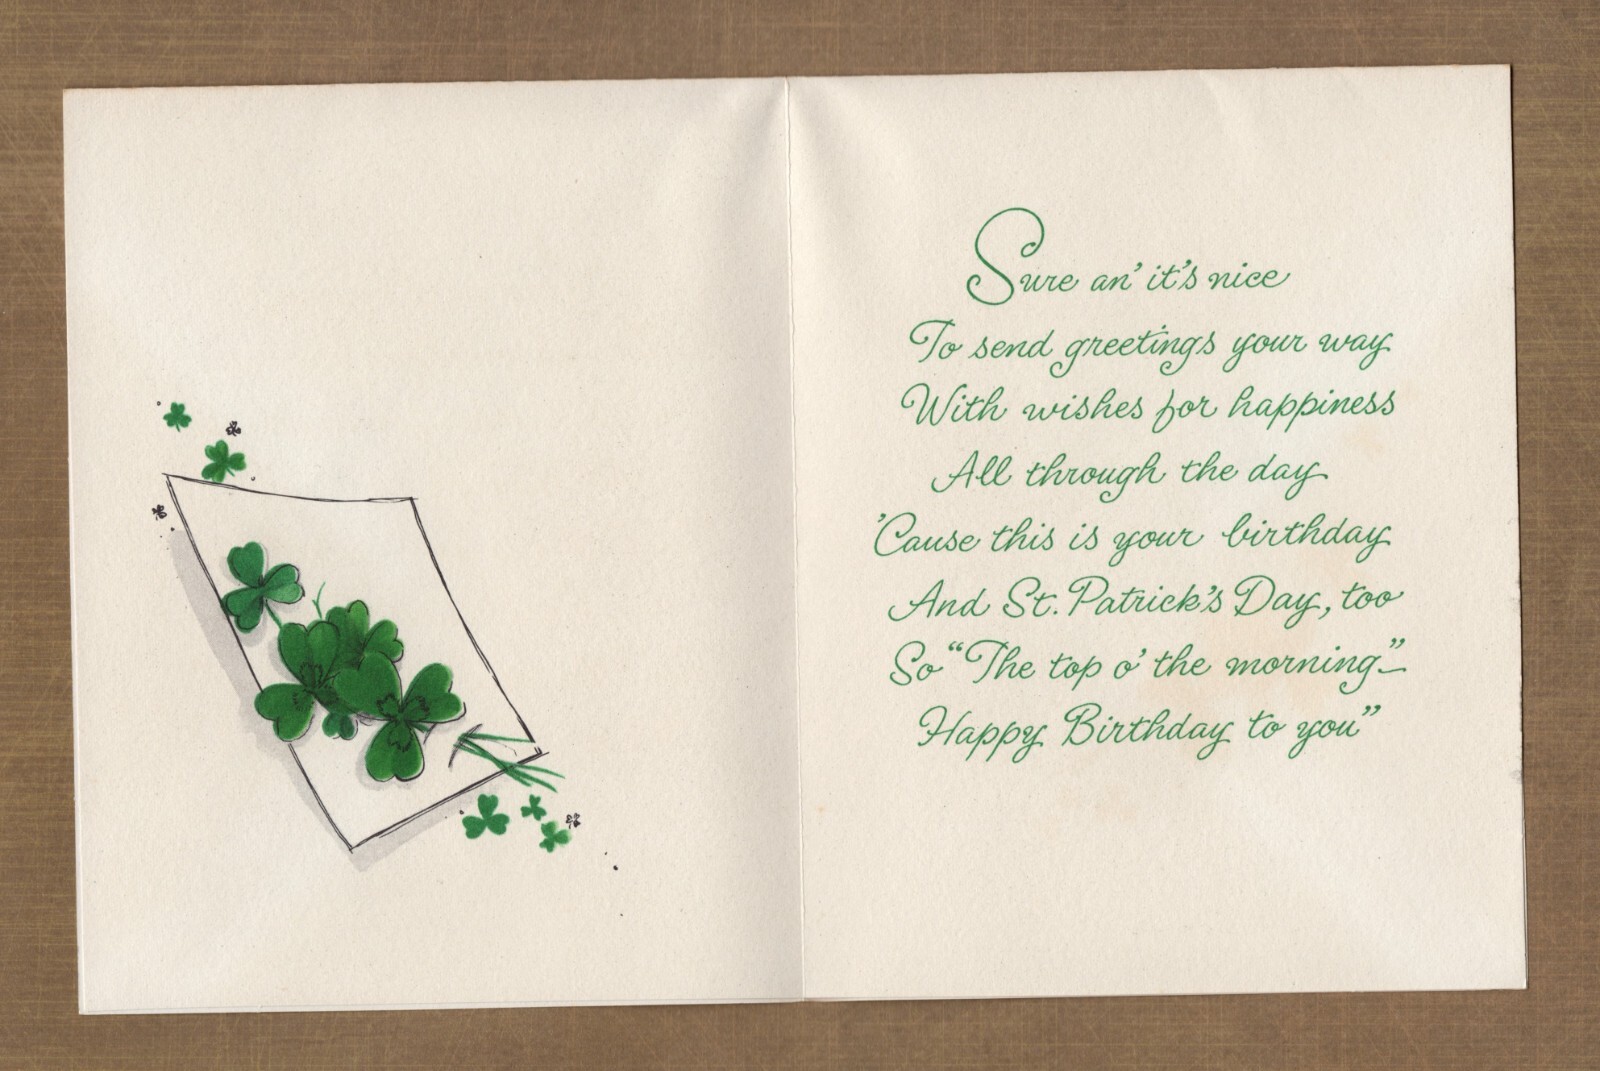 Sure an' it's nice
To send greetings your way
With wishes for happiness
All through the day
'Cause this is your birthday
And St. Patrick's Day, too
So “The top o' the morning”—
Happy Birthday to you”